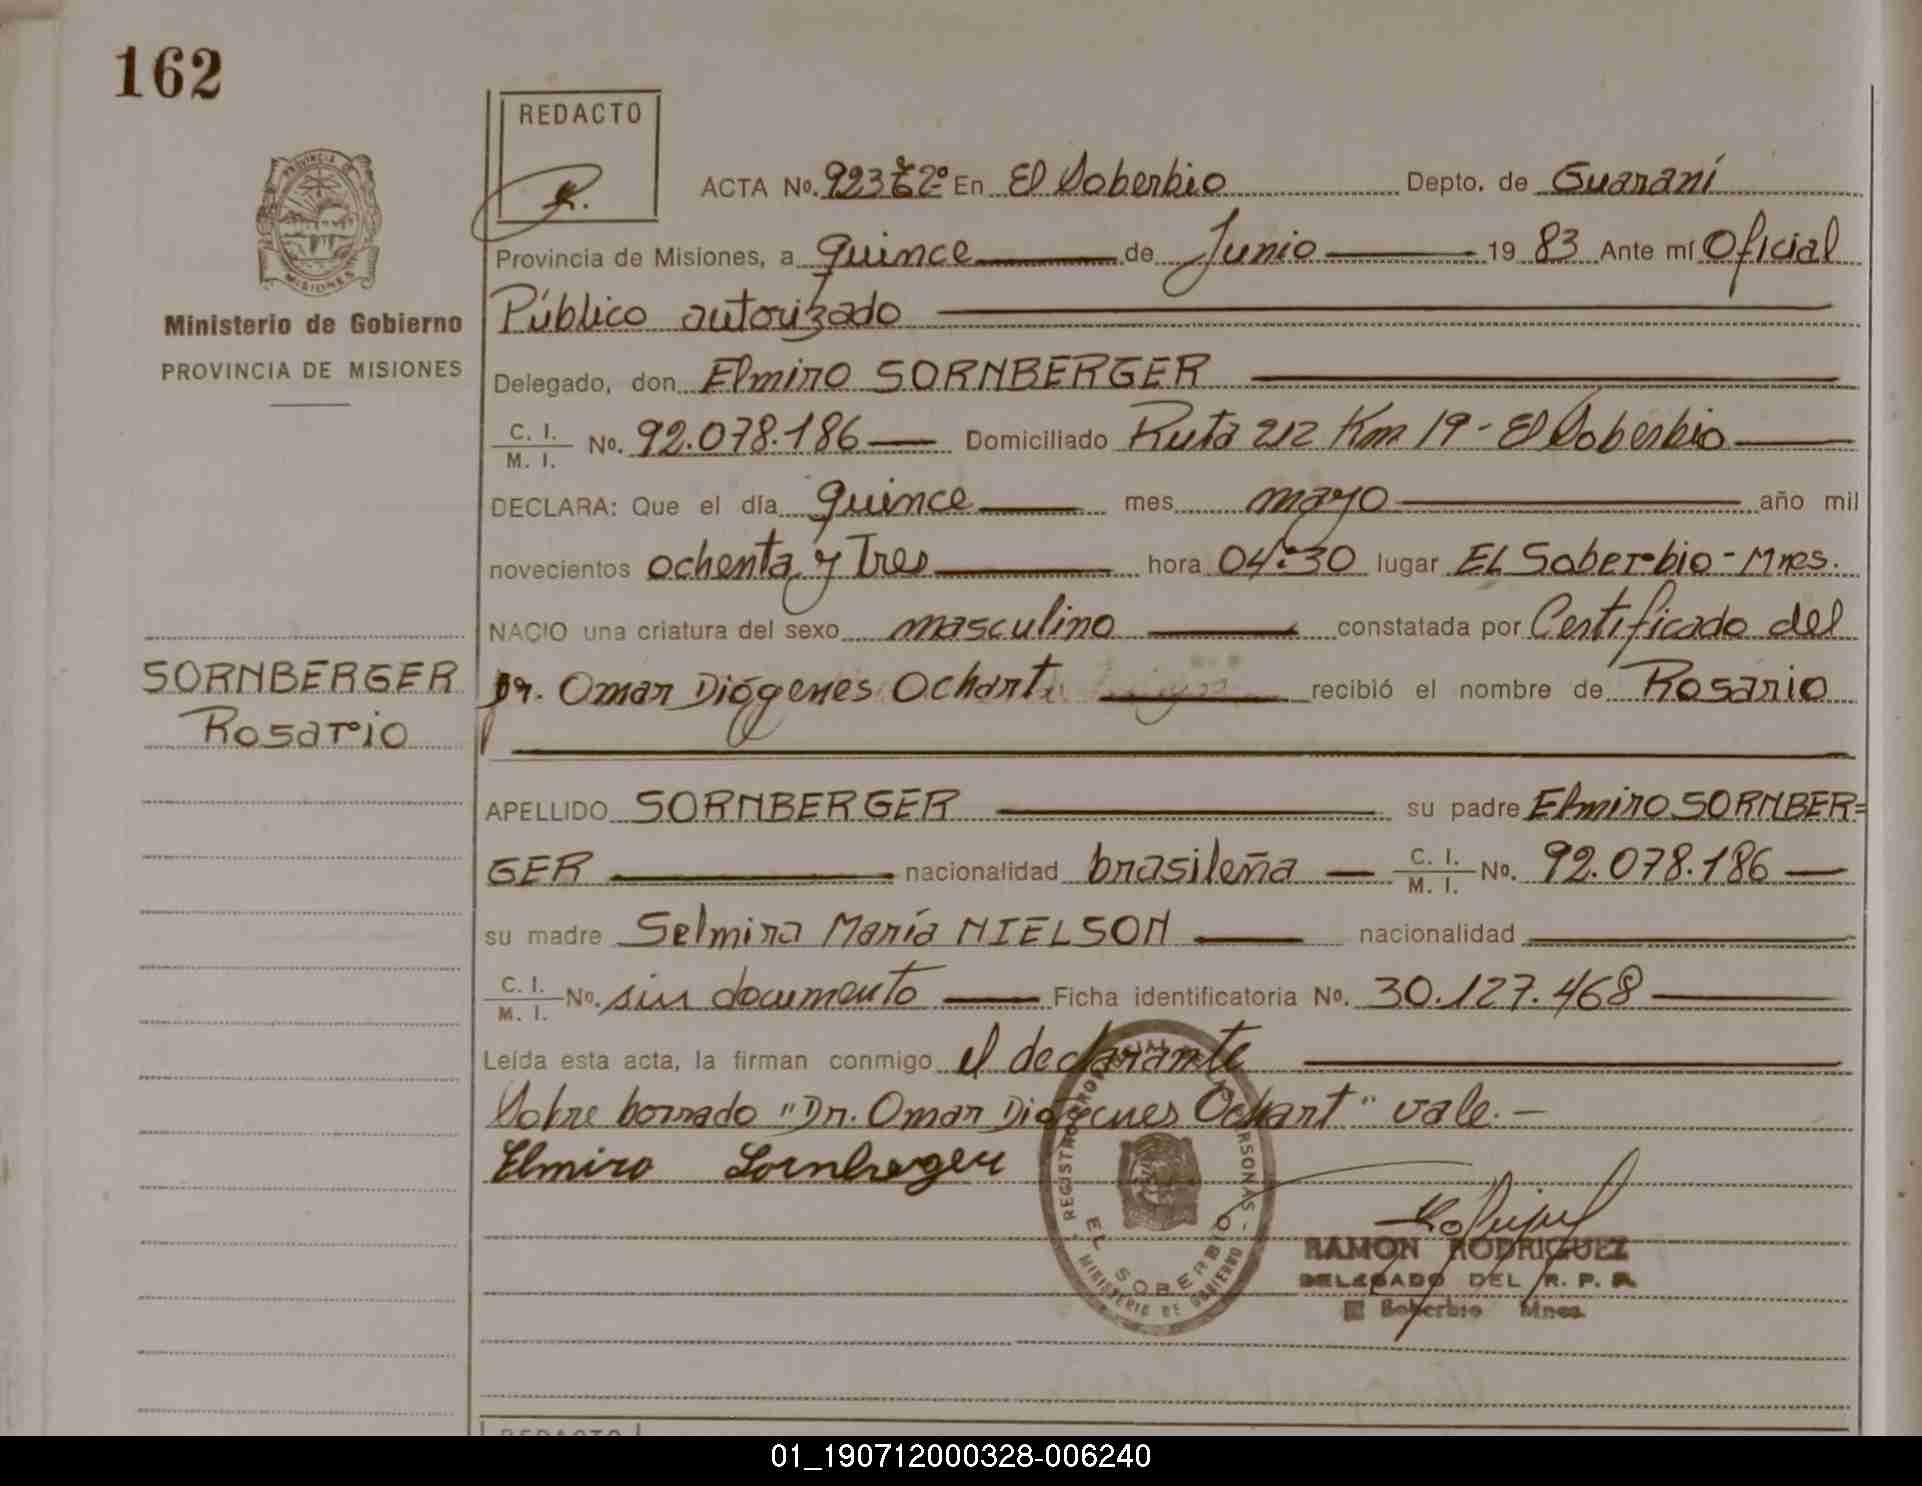 162
REDACTO
ACTA No. 9237 2º En El Soberbio Depto. de Guaraní
Provincia de Misiones, a quince de Junio 19 83 Ante mí Oficial
Público autorizado
Ministerio de Gobierno
PROVINCIA DE MISIONES
Delegado, don Elmiro SORNBERGER
C. I. / M. I. No. 92.078.186 Domiciliado Ruta 212 Km 19 - El Soberbio
DECLARA: Que el día quince mes mayo año mil
novecientos ochenta y Tres hora 04:30 lugar EL Soberbio - Mnes.
NACIO una criatura del sexo masculino constatada por Certificado del
SORNBERGER
Rosario
Dr. Omar Diógenes Ochart recibió el nombre de Rosario
APELLIDO SORNBERGER su padre Elmiro SORNBER=
GER nacionalidad brasileña C. I. / M. I. No. 92.078.186
su madre Selmira María NIELSON nacionalidad
C. I. / M. I. No. sin documento Ficha identificatoria No. 30.127.468
Leída esta acta, la firman conmigo el declarante
Sobre borrado "Dr. Omar Diógenes Ochart" vale.-
Elmiro Sornberger
EL SOBERBIO
MINISTERIO DE GOBIERNO
RAMON RODRIGUEZ
DELEGADO DEL R. P. P.
El Soberbio Mnes.
REDACTO
01_190712000328-006240